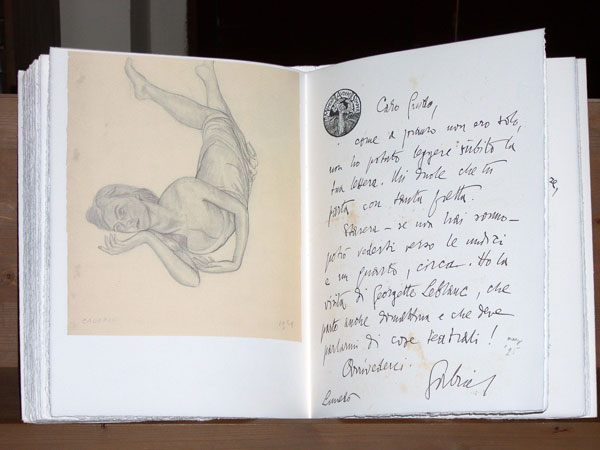 Caro Guido,
come a pranzo non ero solo,
non ho potuto leggere subito la
tua lettera. Mi duole che tu
parta con tanta fretta.
Stasera – se non hai sonno –
potrò vederti verso le undici
e un quarto, circa. Ho la
visita di Georgette Leblanc, che
parte anche domattina e che deve
parlarmi di cose teatrali!
Arrivederci.